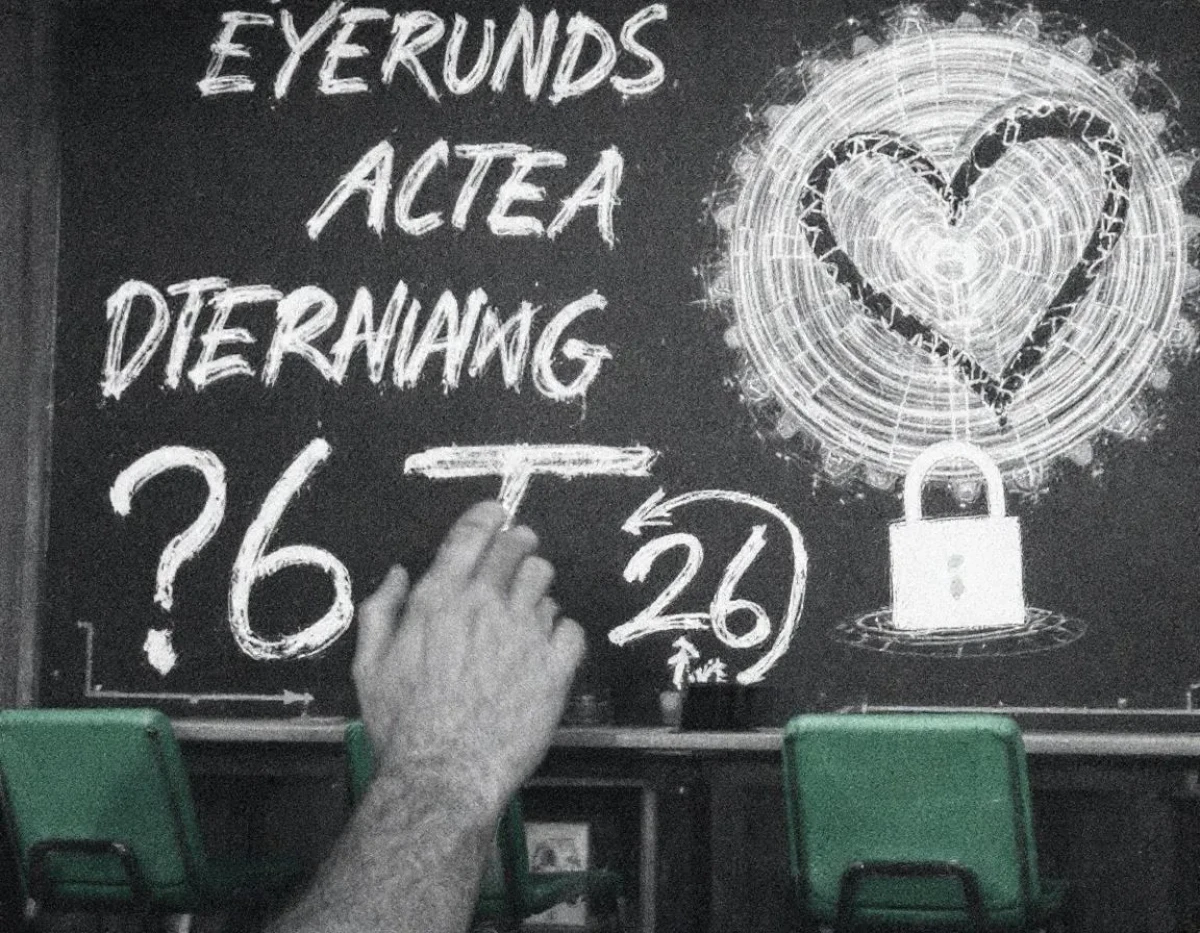 EYERUNDS
ACTEA
?6 T
26